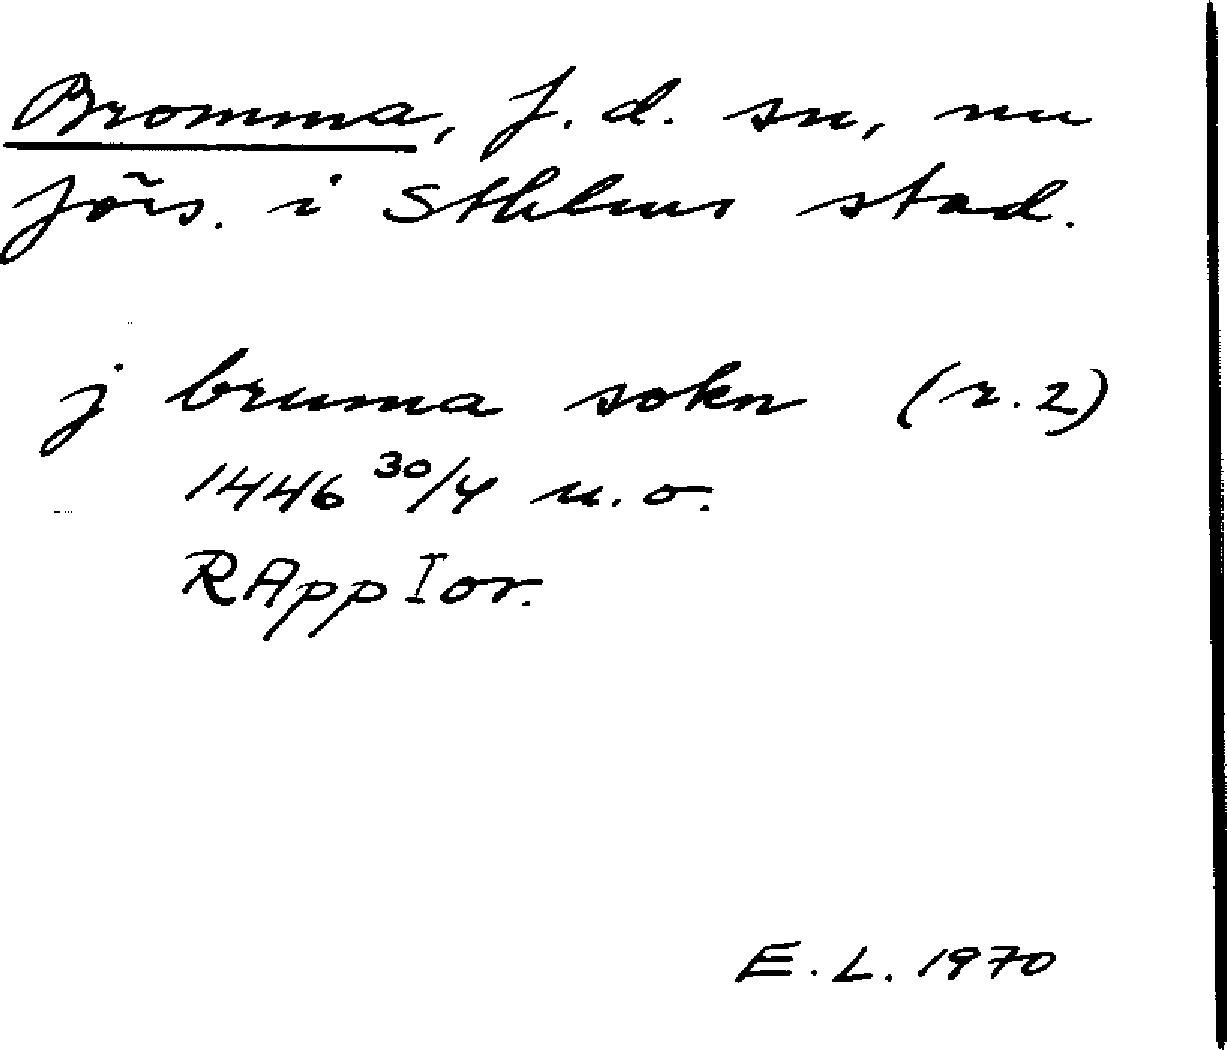 Bromma, f.d. sn, nu
förs. i Sthlms stad.
j bruma sokn (r.2)
1446 30/4 u.o.
RApp I or.
E.L. 1970